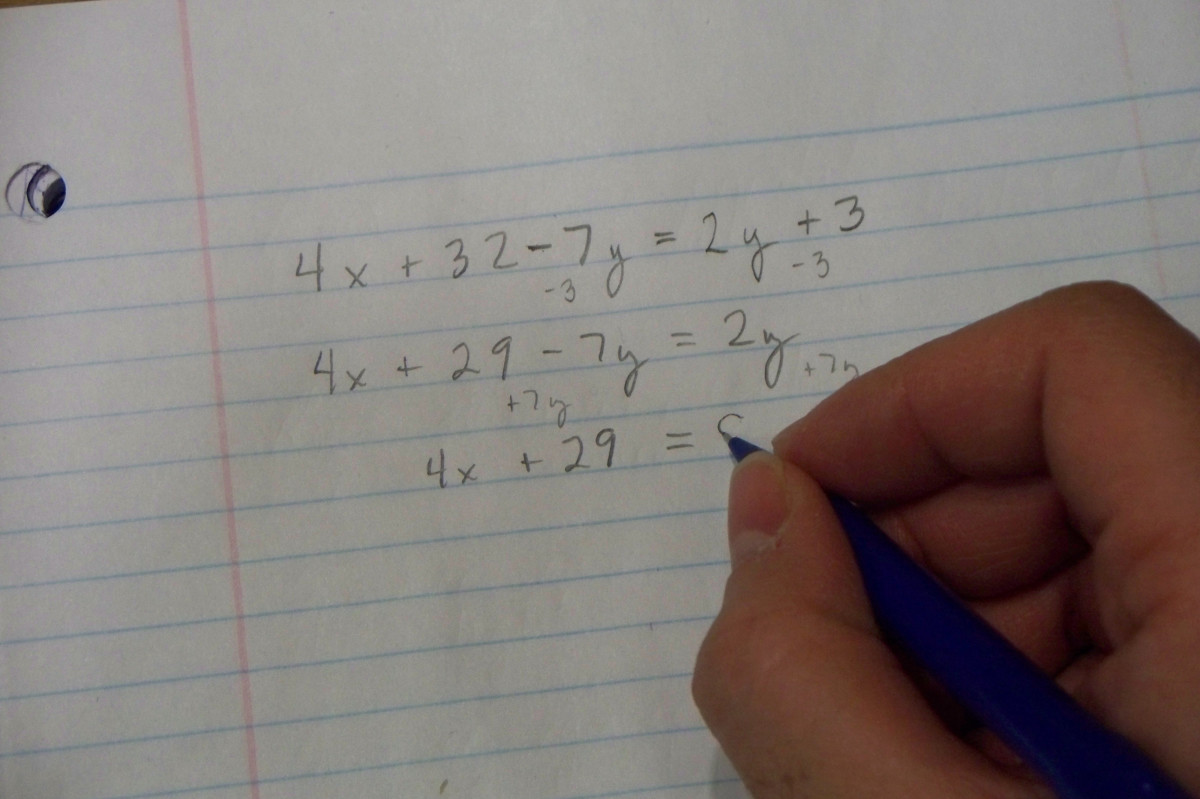 4x + 32 - 7y = 2y + 3
-3 -3
4x + 29 - 7y = 2y
+7y +7y
4x + 29 =